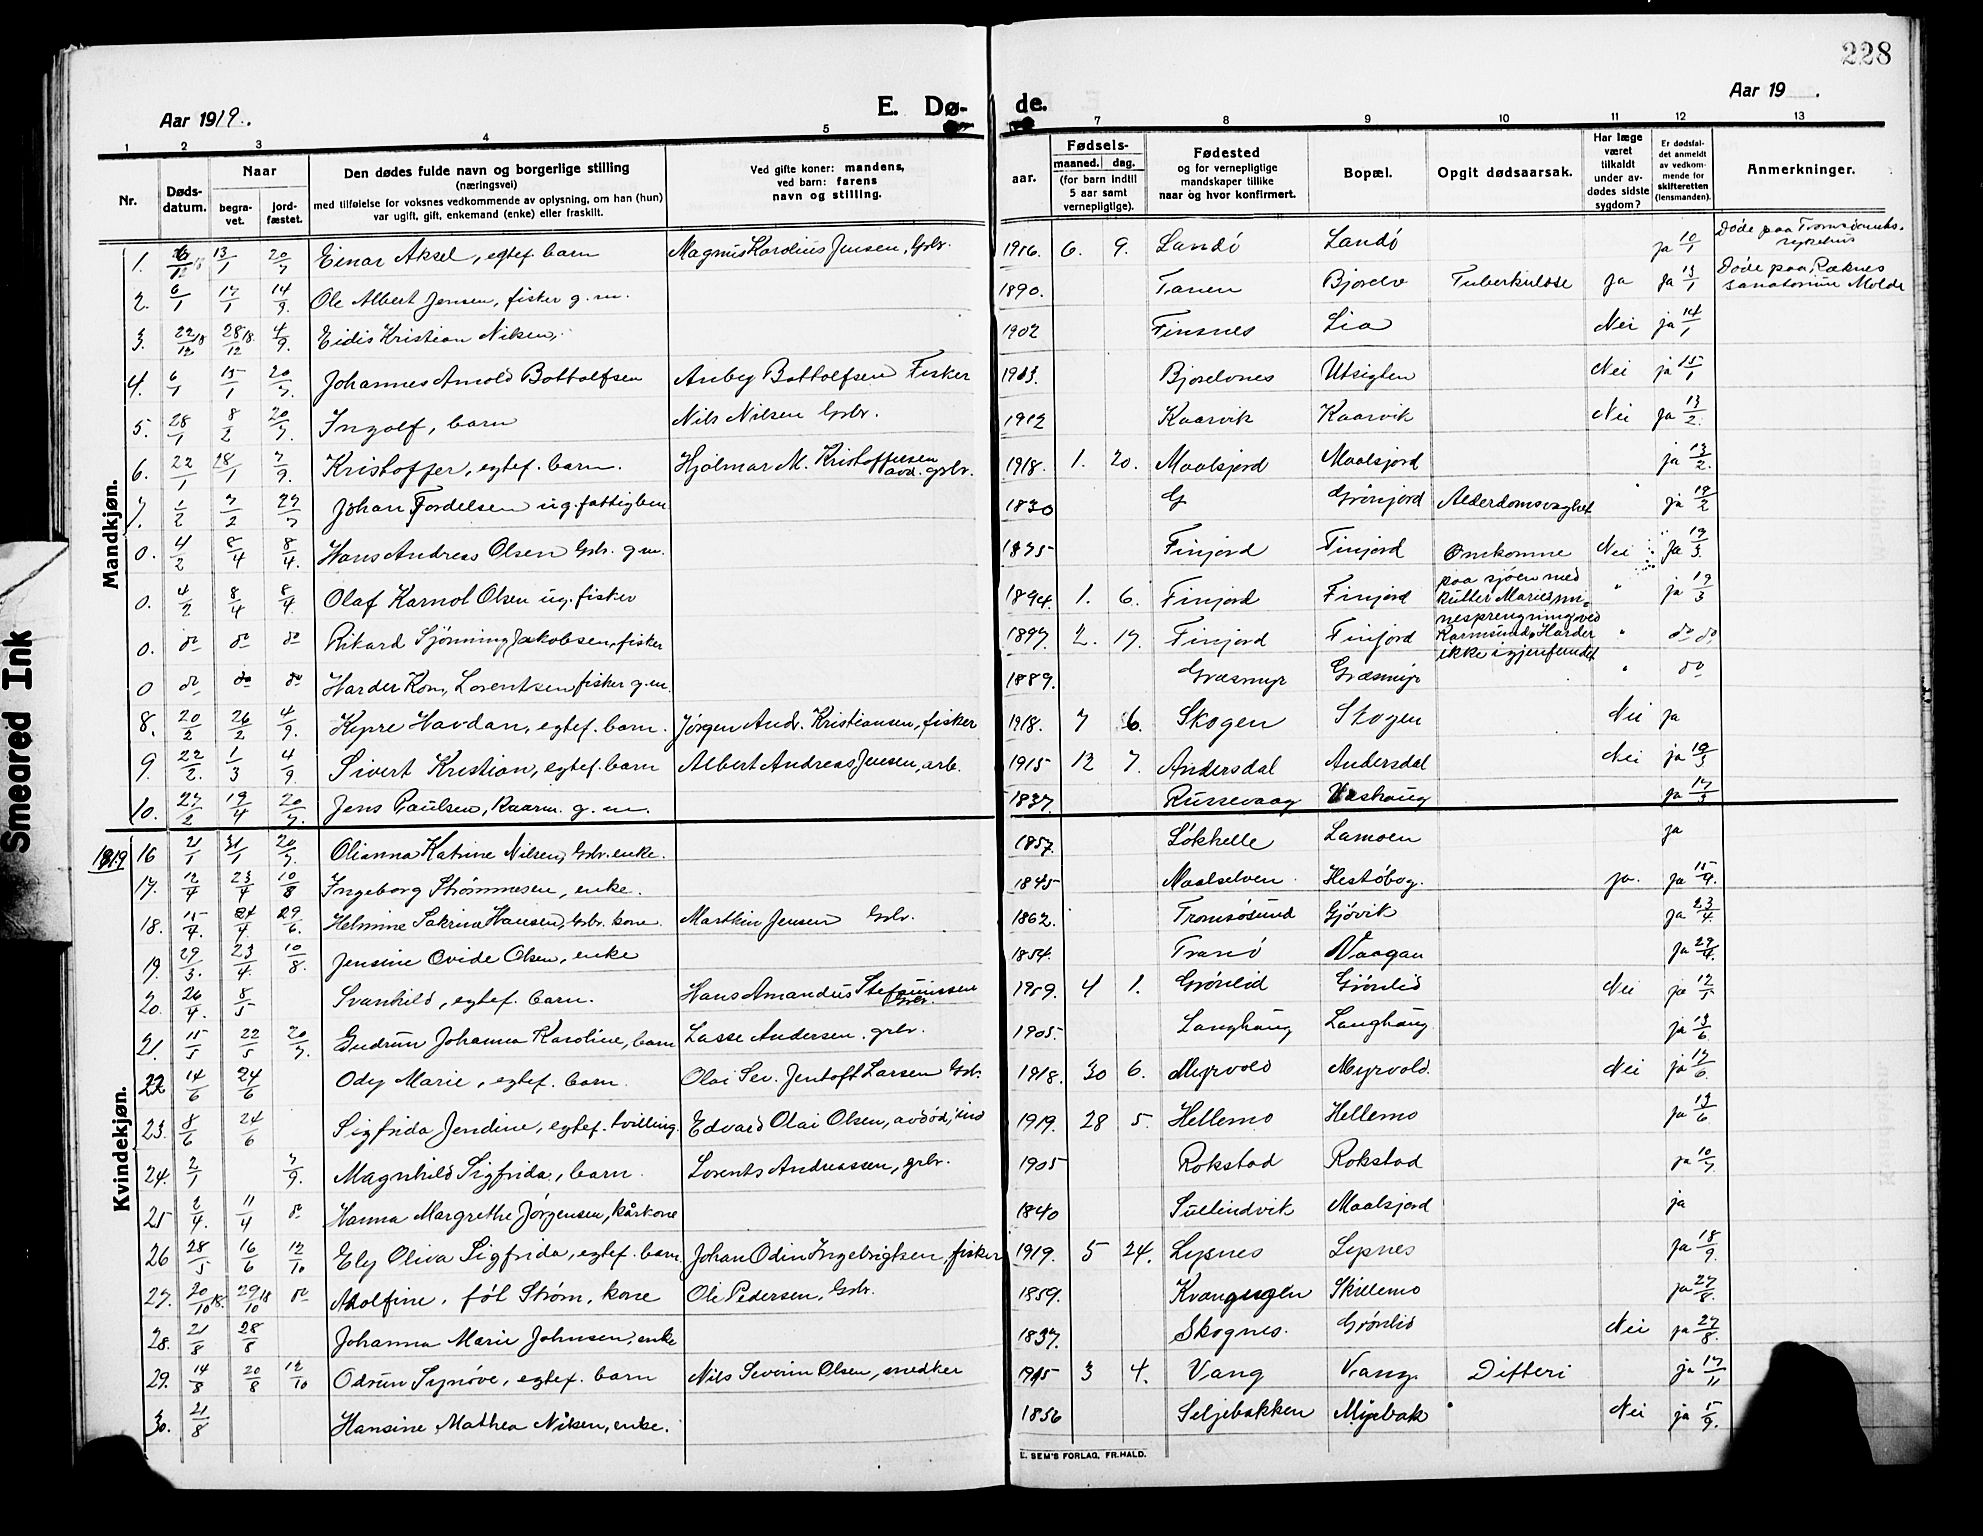 228
Aar 1919.
E. Dø- de.
Aar 19 .
1 2 3 4 5 7 8 9 10 11 12 13
Nr.
Døds-
datum.
Naar
begra-
vet.
jord-
fæstet.
Den dødes fulde navn og borgerlige stilling
(næringsvei)
med tilføielse for voksnes vedkommende av oplysning, om han (hun)
var ugift, gift, enkemand (enke) eller fraskilt.
Ved gifte koner: mandens,
ved barn: farens
navn og stilling.
aar.
Fødsels-
maaned. dag.
(for barn indtil
5 aar samt
vernepligtige).
Fødested
og for vernepligtige
mandskaper tillike
naar og hvor konfirmert.
Bopæl.
Opgit dødsaarsak.
Har læge
været
tilkaldt
under av-
dødes sidste
sygdom?
Er dødsfal-
det anmeldt
av vedkom-
mende for
skifteretten
(lensmanden).
Anmerkninger.
Mandkjøn.
1. 13/1 20/7 Einar Aksel, egtef. barn Magnus Karolius Jensen, Gbr. 1916 6. 9. Landø Landø ja 10/1 Døde paa Tromsø amts- sykehus
2. 6/1 17/1 14/9. Ole Albert Jensen, fisker g.m. 1890. Tanen Bjorelv Tuberkulose ja ja 13/1 Døde paa Ræknes sanatorium Molde
3. 22/12 18 28/12 18. 4/9. Eidis Kristian Nilsen, 1902 Finsnes Lia Nei ja 14/1
4. 6/1 15/1 20/7. Johannes Arnold Bottolfsen Anbey Bottolfsen Fisker 1903. Bjorelvnes Utsigten Nei ja 15/1
5. 28/1 8/2 20/7. Ingolf, barn Nils Nilsen Gbr. 1912 Kaarvik Kaarvik Nei ja 13/2.
6. 22/1 28/1 7/9. Kristoffer, egtef. barn. Hjalmar M. Kristoffersen avd. gbr. 1918. 1. 20. Maalsjord Maalsjord ja 13/2.
7. 1/2 7/2 27/7 Johan Fordelsen ug. fattiglem 1830 G Grønjord Alderdomsvaghet " ja 19/2
0. 4/2 8/4 8/4. Hans Andreas Olsen Gbr. g.m. 1875 Finjord Finjord Omkomne Nei ja 19/3.
0. 4/2 8/4 8/4. Olaf Karnol Olsen ug. fisker 1894. 1. 6. Finjord Finjord paa sjøen med kutter Maries mi- " ja 19/3
0. do do do Rikard Sjønning Jakobsen, fisker 1897 2. 17. Finjord Finfjord nesprengning ved Karmsund. Harder " do do
0 do do do Harder Kon. Lorentsen fisker g.m. 1889. Græsmyr Græsmyr ikke igjenfundet " do
8. 20/2 26/2 4/9. Kyrre Havdan, egtef. barn. Jørgen Andr. Kristiansen, fisker 1918. 7 6. Skogen Skogen Nei ja
9. 22/2. 1/3 4/9. Sivert Kristian, egtef. barn Albert Andreas Jensen, arb. 1915 12 7. Andersdal Andersdal Nei ja 19/3
10. 27/2 19/4 20/7. Jens Paulsen, Kaarm. g.m. 1837. Russevaag ja 17/3
1919
Kvindekjøn.
16 21/1 31/1 20/7. Olianna Katrine Nilsen, Gbr. enke. 1857. Løkhelle Lamoen ja
17. 12/4 23/4 10/8 Ingeborg Strømmesen, enke. 1845 Maalselven. Hestøbog. ja. ja 15/9.
18. 15/4. 24/4 29/6. Helmine Sakrine Hansen, Gbr. kone Marthin Jensen Gbr. 1862. Tromsøsund Gjøvik ja 23/4
19. 29/3. 23/4. 10/8. Jensine Ovide Olsen, enke 1854. Tranø Vaagan ja 29/4.
20. 26/4. 8/5 Svanhild, egtef. barn. Hans Amandus Stefanussen Gbr. 1909. 4 1. Grønlid Grønlid Nei ja 12/5
21. 15/5 22/5 20/7. Gudrun Johanna Karoline, barn Lasse Andersen. gbr. 1905. Langhaug Langhaug ja 13/6
22 14/6 24/6 Ody Marie, egtef. barn. Olai Sev. Jentoft Larsen Gbr. 1918. 30 6. Myrvold Myrvold. Nei ja 17/6.
23. 8/6 24/6 Sigfrida Jendine, egtef. tvilling. Edvard Olai Olsen, avdød, ind 1919. 28 5. Hellemo Hellemo ja 13/6.
24. 2/1 7/9. Magnhild Sigfrida, barn. Lorents Andreassen, gbr. 1905 Rokstad Rokstad ja 10/7
25 2/4. 11/4 do Hanna Margrethe Jørgensen, kårkone 1840 Sullindvik Maalsjord ja
26 28/5 16/6 12/10 Ely Oliva Sigfrida, egtef. barn. Johan Odin Ingebrigtsen, fisker 1919 5 24. Lysnes Lysnes ja 18/9.
27. 20/10 18. 29/10 18 do Adolfine, føt Strøm, kone Ole Pedersen, Gbr. 1859. Kvangugen Skillemo ja 27/8.
28. 21/8 28/8 Johanna Marie Johnsen, enke 1837. Skognes. Grønlid Nei ja 27/8.
29. 14/8 20/8 12/10 Odrun Synøve, egtef. barn Nils Severin Olsen, snedker 1915 3 4. Vang Vang. Difteri ja 17/11
30. 21/8 Hansine Mathea Nilsen, enke. 1856 Seljebakken Myrbak Nei ja 15/9.
E. SEM'S FORLAG, FR.HALD.
Smeared Ink